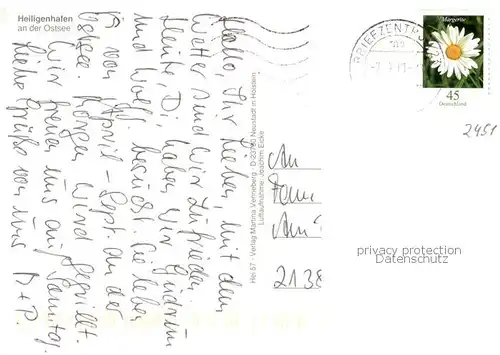 Heiligenhafen
an der Ostsee
Hallo, Ihr Lieben, mit dem
Wetter sind wir zufrieden.
Heute, Di, haben wir Gudrun
und Wolf. besucht. Sie leben
so von April - Sept. an der
Ostsee. Morgen wird gegrillt.
Wir freuen uns auf Samstag.
Liebe Grüße von uns D + P
Hei 57 - Verlag Martina Vermeberg · D-23730 Neustadt in Holstein
Luftaufnahme: Joachim Eicke
BRIEFZENTRUM
Margerite
45
Deutschland
2451
An
Fam
Am
2138
privacy protection
Datenschutz